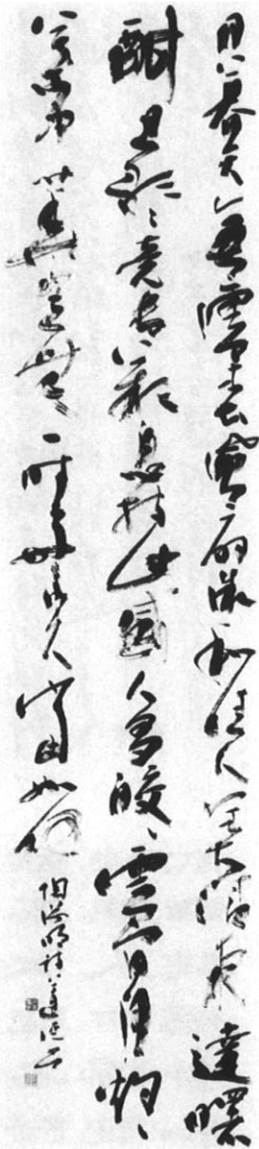 日暮天無雲春風扇微和佳人美清夜達曙
酣且歌〻竟長歎息持此感人多皎〻雲間月灼〻
葉中華豈無一時好不久當如何
陶淵明詩